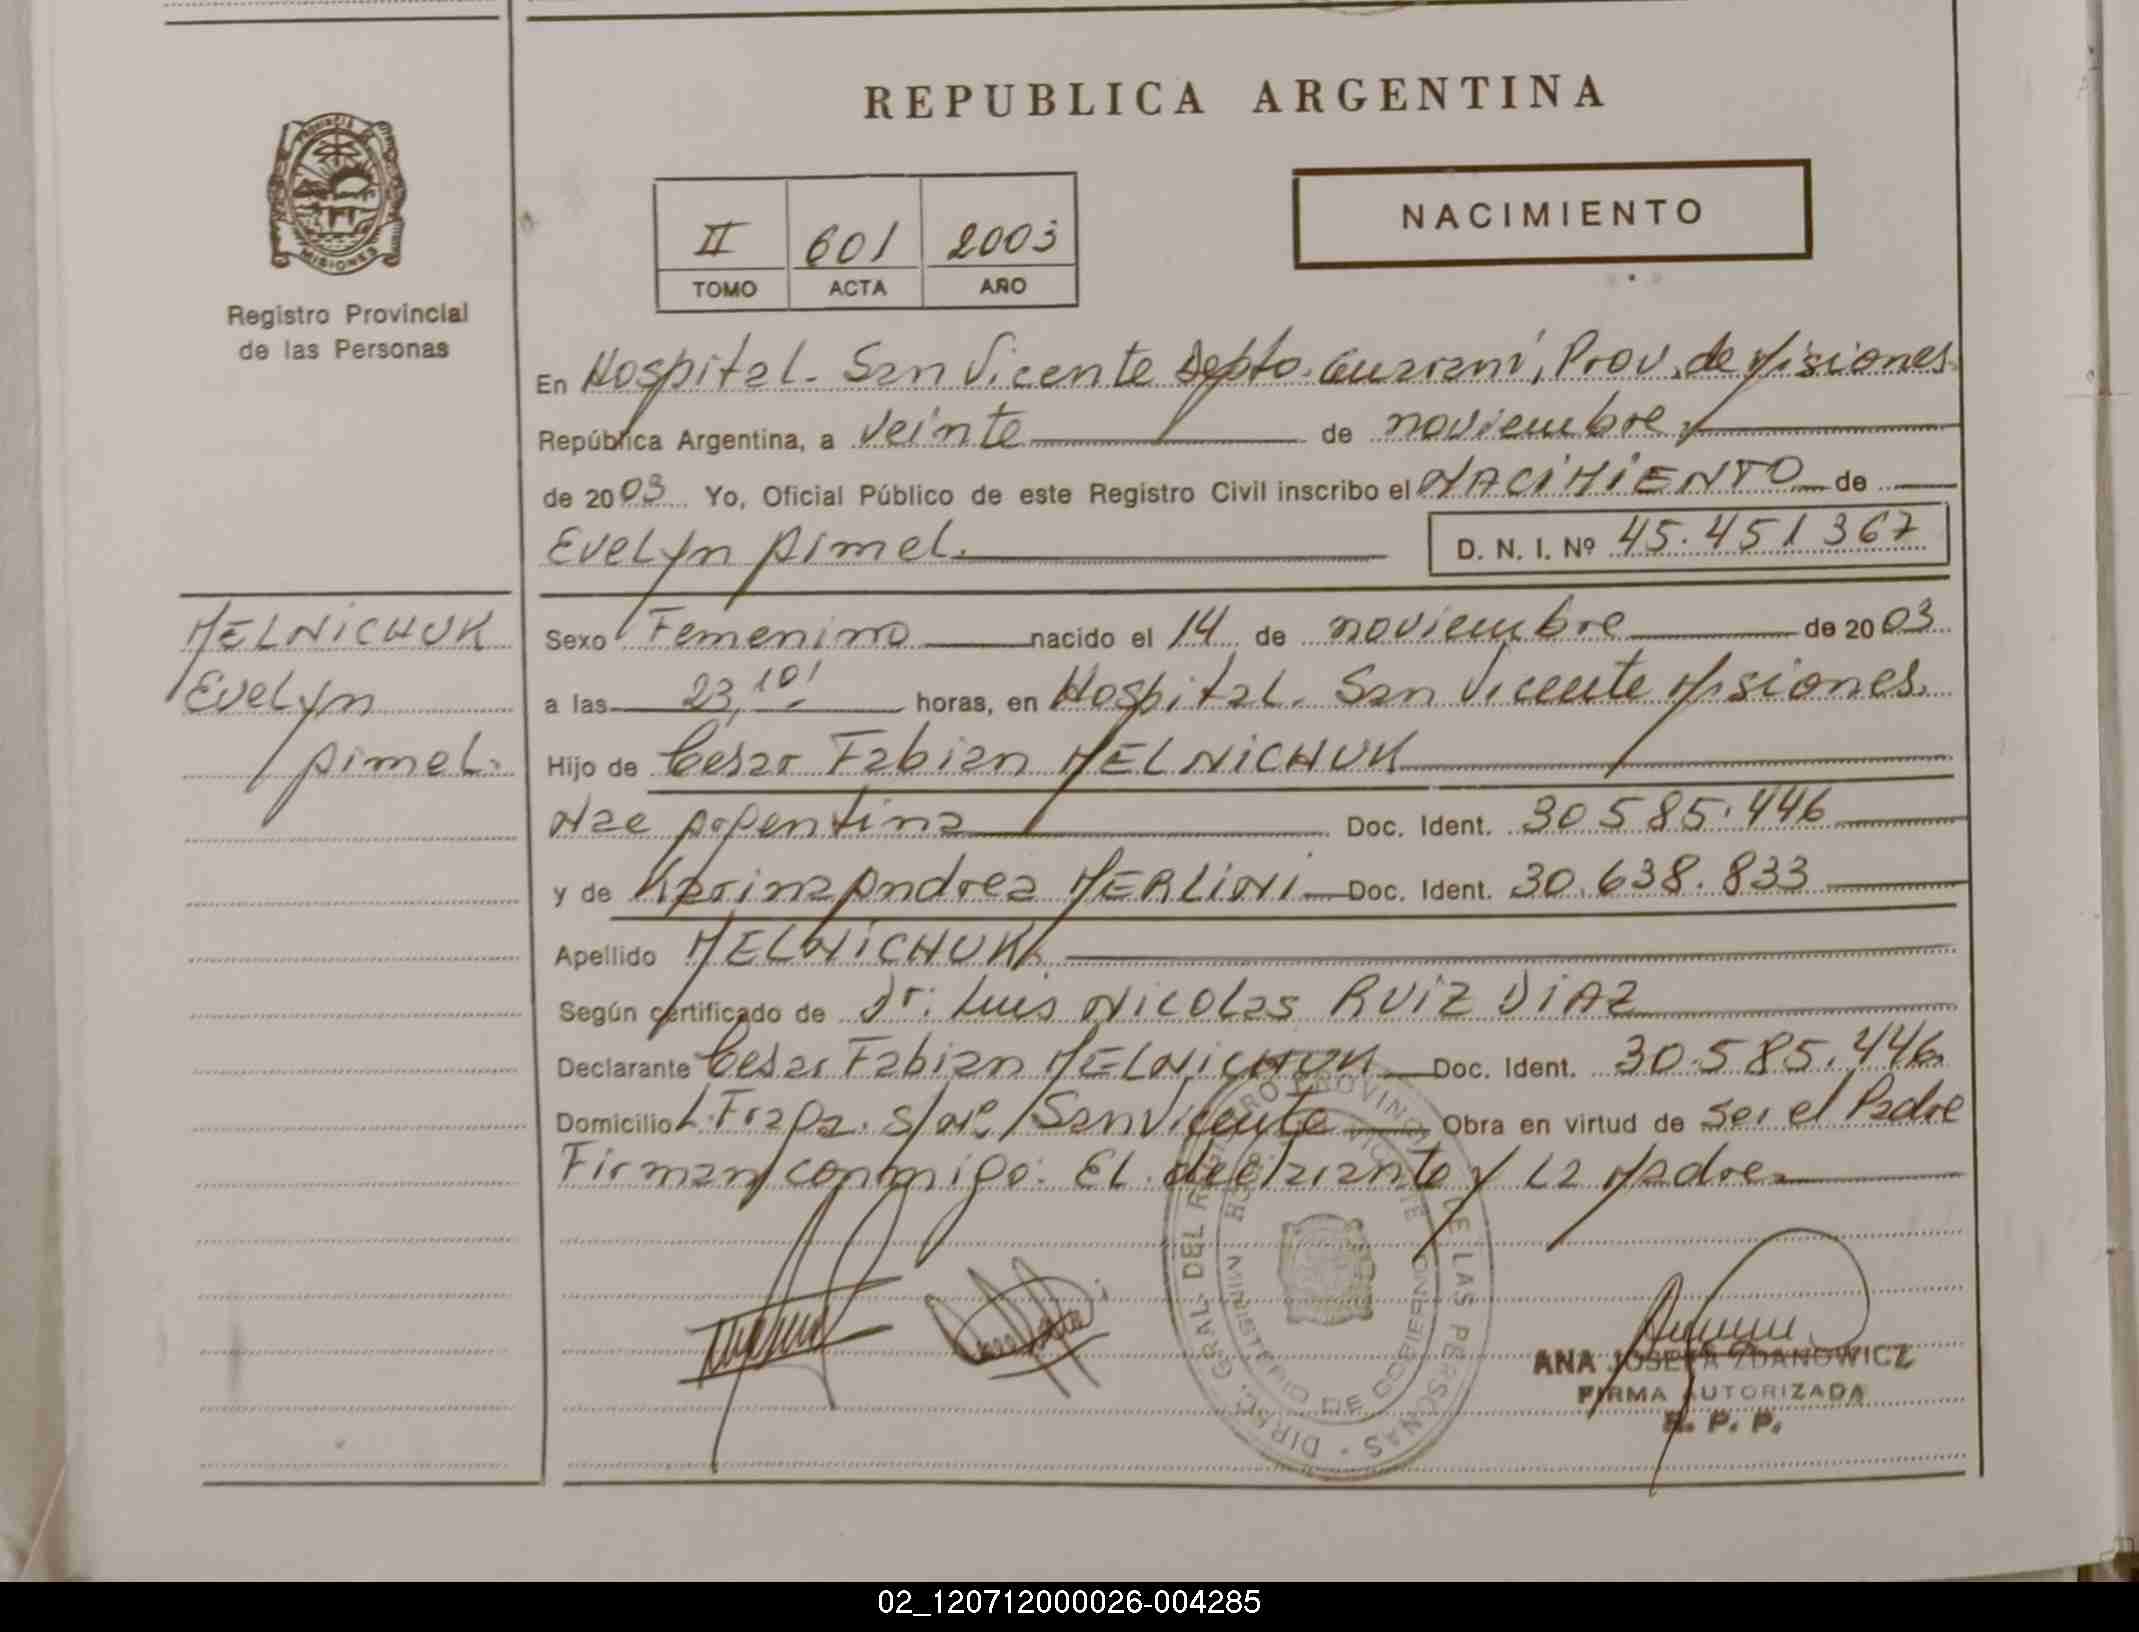 REPUBLICA ARGENTINA
PROVINCIA DE
MISIONES
Registro Provincial
de las Personas
II 601 2003
TOMO ACTA AÑO
NACIMIENTO
En Hospital. San Vicente Depto. Guarani, Prov. de Misiones.
República Argentina, a veinte de noviembre
de 2003 Yo, Oficial Público de este Registro Civil inscribo el NACIMIENTO de
Evelyn Aimel. D. N. I. Nº 45.451367
MELNICHUK
Evelyn
Aimel.
Sexo Femenino nacido el 14 de noviembre de 2003
a las 23,10' horas, en Hospital. San Vicente Misiones.
Hijo de Cesar Fabian MELNICHUK
Nac Argentina Doc. Ident. 30585.446
y de Karina Andrea MERLINI Doc. Ident. 30.638.833
Apellido MELNICHUK.
Según certificado de Dr. Luis NICOLAS RUIZ DIAZ
Declarante Cesar Fabian MELNICHUK Doc. Ident. 30.585.446
Domicilio L. Fraga. s/nº San Vicente Obra en virtud de ser el Padre
Firman conmigo: EL declarante y La Madre.
DIREC. GRAL. DEL REGISTRO PROVINCIAL DE LAS PERSONAS
MINISTERIO DE GOBIERNO
ANA JOSEFA ZDANOWICZ
FIRMA AUTORIZADA
R. P. P.
02_120712000026-004285